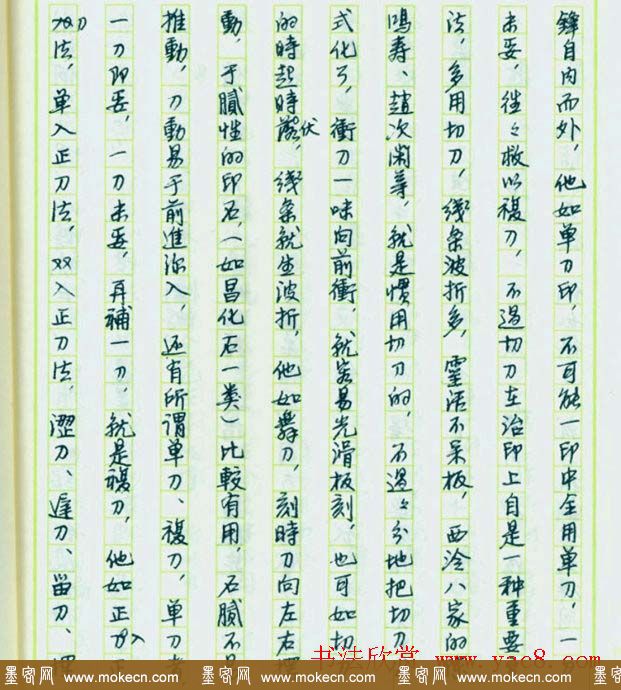 鋒自内而外，他如单刀印，不可能一印中全用单刀，一
未妥，往々救以複刀，不過切刀在治印上自是一种重要
法，多用切刀，綫条波折多，靈活不呆板，西泠八家的
鸿寿、趙次闲等，就是慣用切刀的，不過々分地把切刀
式化了，衝刀一味向前衝，就容易光滑板刻，也可如切
的時起時伏，綫条就生波折，他如舞刀，刻時刀向左右摆
動，于膩性的印石，（如昌化石一类）比較有用，石膩不易
推動，刀動易于前進深入，还有所谓单刀、複刀，单刀者
一刀即妥，一刀未妥，再補一刀，就是複刀，他如正入正
刀法，单入正刀法，双入正刀法，澀刀、遲刀、留刀、埋
书法欣赏 www.yac8.com
墨客网 www.mokecn.com 墨客网 www.mokecn.com 墨客网 www.mokecn.com